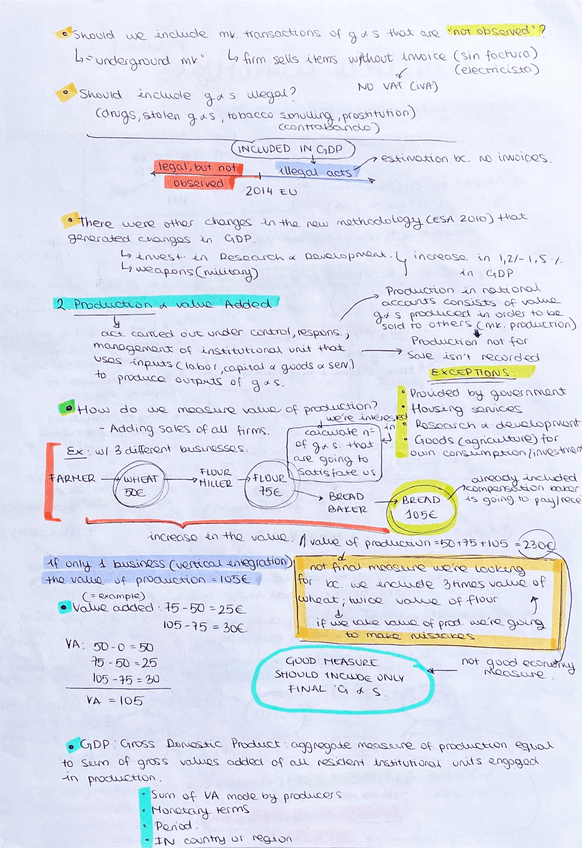 Should we include mk transactions of g & s that are "not observed"?
↳ = underground mk ↳ firm sells items without invoice (sin factura)
(electricista)
NO VAT (IVA)
Should include g & s illegal?
(drugs, stolen g & s, tobacco, prostitution)
(contrabando)
INCLUDED IN GDP
legal, but not observed
illegal acts → estimation bc. no invoices.
2014 EU
There were other changes in the new methodology (ESA 2010) that
generated changes in GDP.
↳ invest in Research & Development. ↳ increase in 1,2/-1,5 %
in GDP
↳ weapons (military)
2. Production & value Added
act. carried out under control, respons.,
management of institutional unit that
uses inputs (labor, capital & goods & serv.)
to produce outputs of g & s.
Production in national
accounts consists of value
g & s produced in order to be
sold to others (mk. production)
Production not for
sale isn't recorded
EXCEPTIONS:
· Provided by government
· Housing services
· Research & development
· Goods (agriculture) for
own consumption/investment
How do we measure value of production?
- Adding sales of all firms.
we're interested in
calculate nº
of g & s that
are going to
satisfate us
Ex: w/ 3 different businesses.
FARMER → WHEAT 50€ → FLOUR MILLER → FLOUR 75€ → BREAD BAKER → BREAD 105€
already included
compensation baker
is going to pay/rece
increase in the value. value of production = 50+75+105 = 230€
if only 1 business (vertical integration)
the value of production = 105€
(= example)
not final measure we're looking
for bc. we include 3 times value of
wheat; twice value of flour
if we take value of prod. we're going
to make mistakes
Value added: 75-50 = 25€
105-75 = 30€
VA: 50-0 = 50
75-50 = 25
105-75 = 30
VA = 105
GOOD MEASURE
SHOULD INCLUDE ONLY
FINAL G & S.
not good economy
measure.
GDP: Gross Domestic Product: aggregate measure of production equal
to sum of gross values added of all resident institutional units engaged
in production.
· Sum of VA made by producers
· Monetary terms
· Period.
· IN country or region